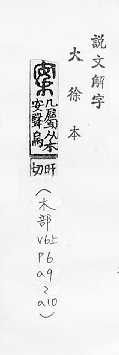 說文解字
大徐本
案
几屬从木
安聲烏
旰
切
（木部
v6上
p6
a9
~
a10）